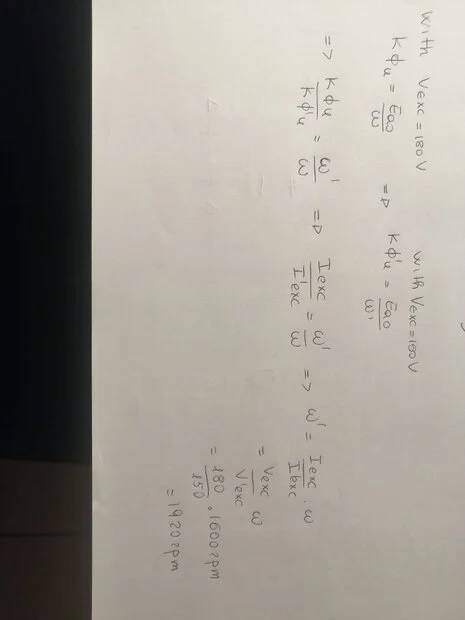 with Vexc = 180V with Vexc = 150V
Kϕu = Eao/ω => Kϕ'u = Eao/ω'
=> Kϕu/Kϕ'u = ω'/ω => Iexc/I'exc = ω'/ω => ω' = Iexc/I'exc . ω
= Vexc/V'exc ω
= 180/150 . 1600rpm
= 1920rpm